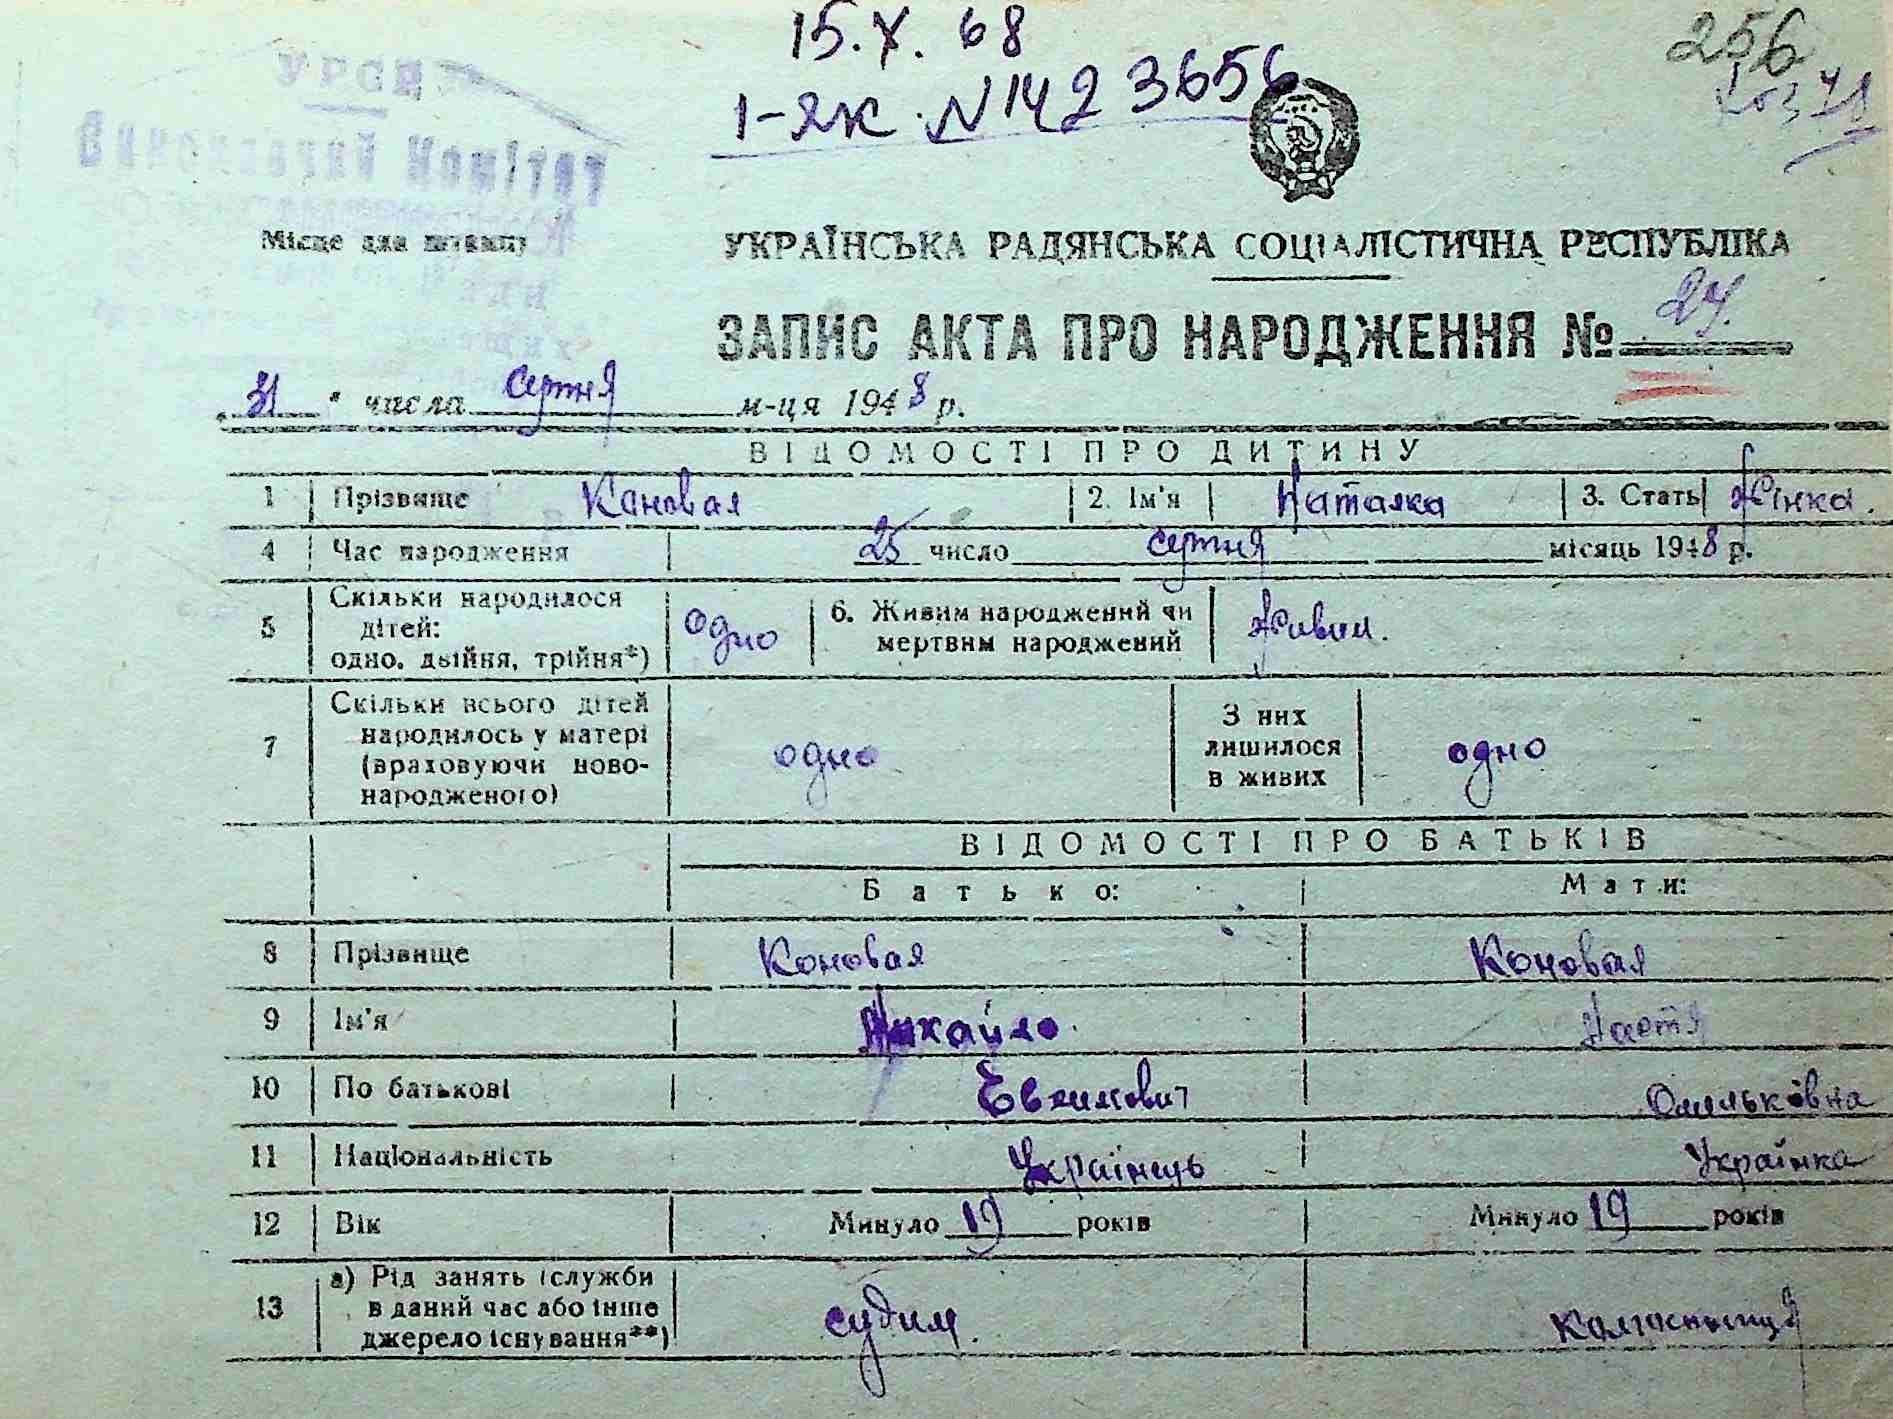 15.X.68
1-ЯК N 1423656
256
УРСР
Виконавчий Комітет
Місце для штампу
УКРАЇНСЬКА РАДЯНСЬКА СОЦІАЛІСТИЧНА РЕСПУБЛІКА
ЗАПИС АКТА ПРО НАРОДЖЕННЯ № 27.
„31" числа серпня м-ця 1948 р.
ВІДОМОСТІ ПРО ДИТИНУ
1 Прізвище Кановая 2. Ім'я Наталка 3. Стать Жінка.
4 Час народження 25 число серпня місяць 1948 р.
5 Скільки народилося дітей: одно, двійня, трійня*) одно 6. Живим народжений чи мертвим народжений Живим.
7 Скільки всього дітей народилось у матері (враховуючи новонародженого) одно З них лишилося в живих одно
ВІДОМОСТІ ПРО БАТЬКІВ
Батько: Мати:
8 Прізвище Коновая Коновая
9 Ім'я Михайло Настя
10 По батькові Омельковна
11 Національність Українець Українка
12 Вік Минуло 19 років Минуло 19 років
13 а) Рід занять (служби в даний час або інше джерело існування**) судим. колгоспниця